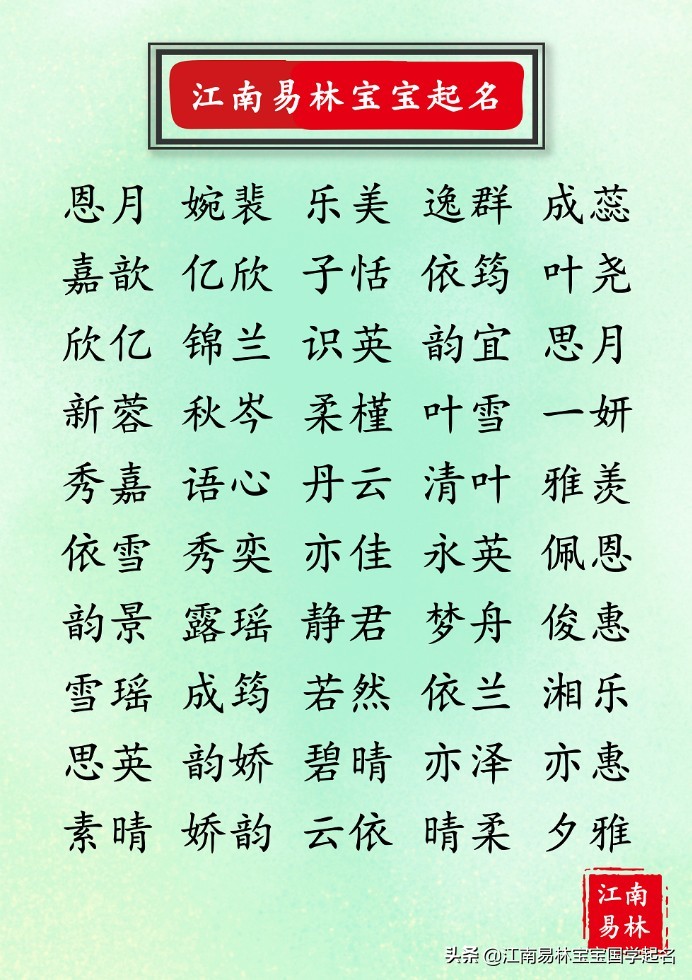 江南易林宝宝起名
恩月 婉裴 乐美 逸群 成蕊
嘉歆 亿欣 子恬 依筠 叶尧
欣亿 锦兰 识英 韵宜 思月
新蓉 秋岑 柔槿 叶雪 一妍
秀嘉 语心 丹云 清叶 雅羡
依雪 秀奕 亦佳 永英 佩恩
韵景 露瑶 静君 梦舟 俊惠
雪瑶 成筠 若然 依兰 湘乐
思英 韵娇 碧晴 亦泽 亦惠
素晴 娇韵 云依 晴柔 夕雅
江南
易林
头条 @江南易林宝宝国学起名